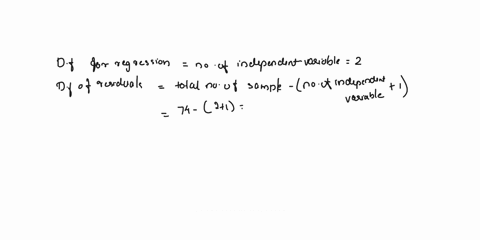 D.f for regression = no. of independent variable = 2
Df of residuals = total no. of sample - (no. of independent variable + 1)
= 74 - (2+1) =